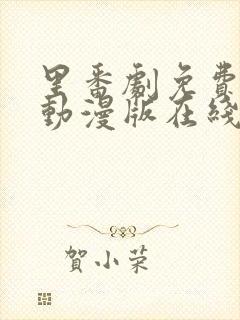 里番劇免費
動漫版在綫
賀小荣